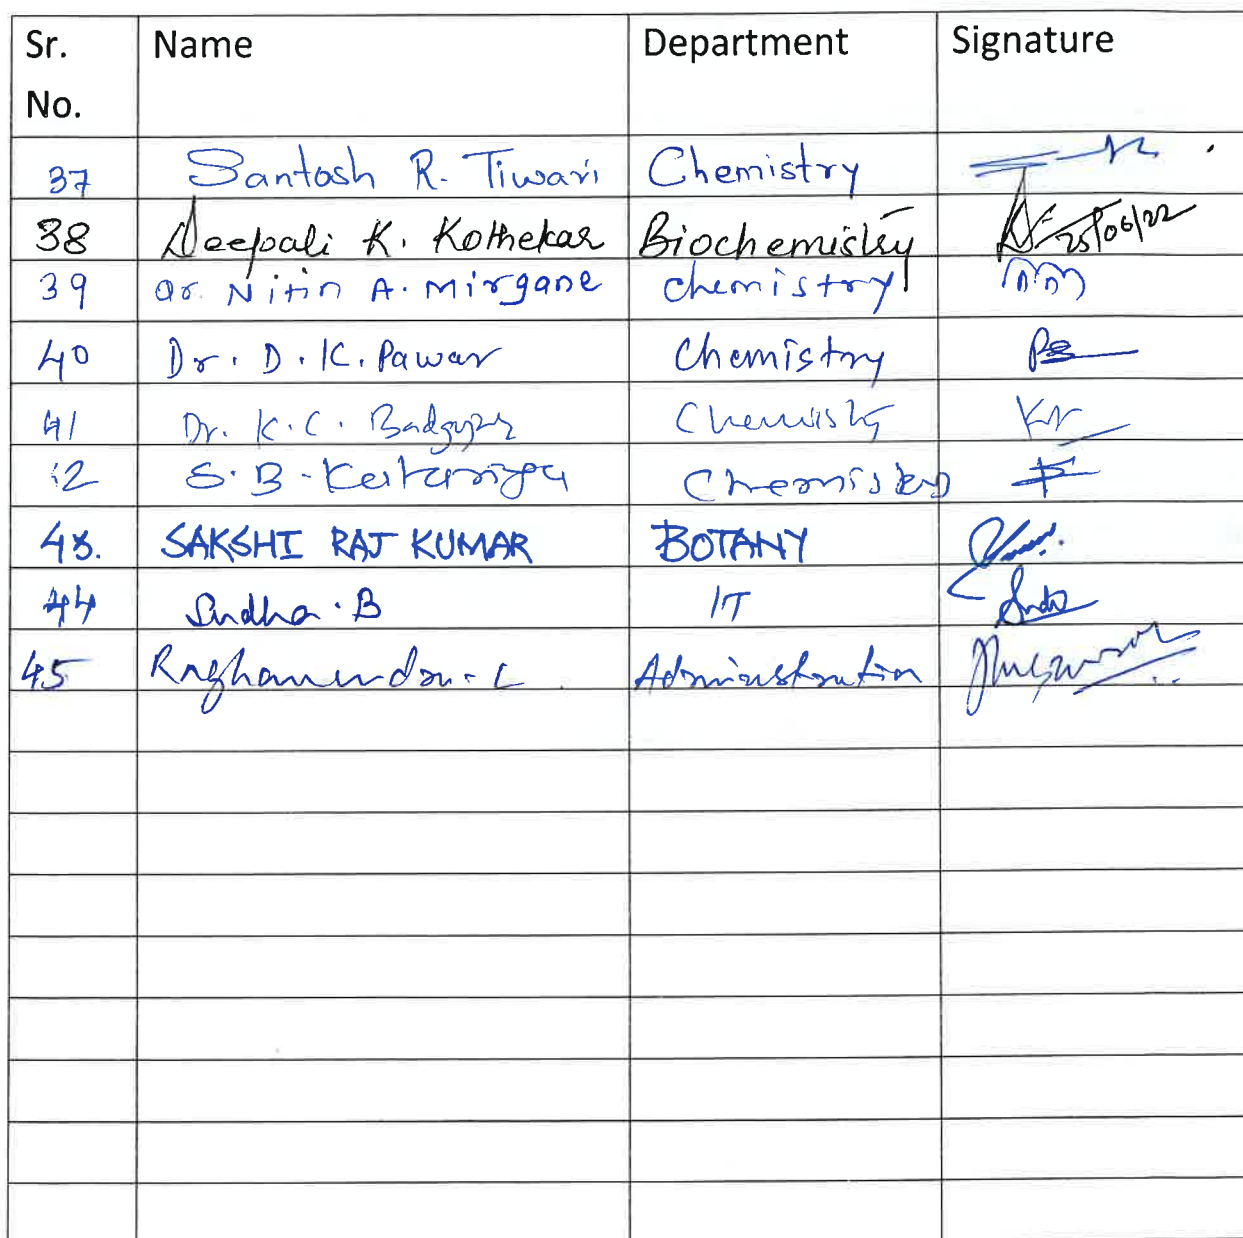 Sr. No. Name Department Signature
37 Santosh R. Tiwari Chemistry
38 Deepali K. Kothekar Biochemistry 25/06/22
39 Dr. Nitin A. Mirgane chemistry
40 Dr. D. K. Pawar Chemistry
41 Dr. K. C. Chemistry
S. B. Chemistry
43. SAKSHI RAJ KUMAR BOTANY
44 Sudha. B IT
45 Administration